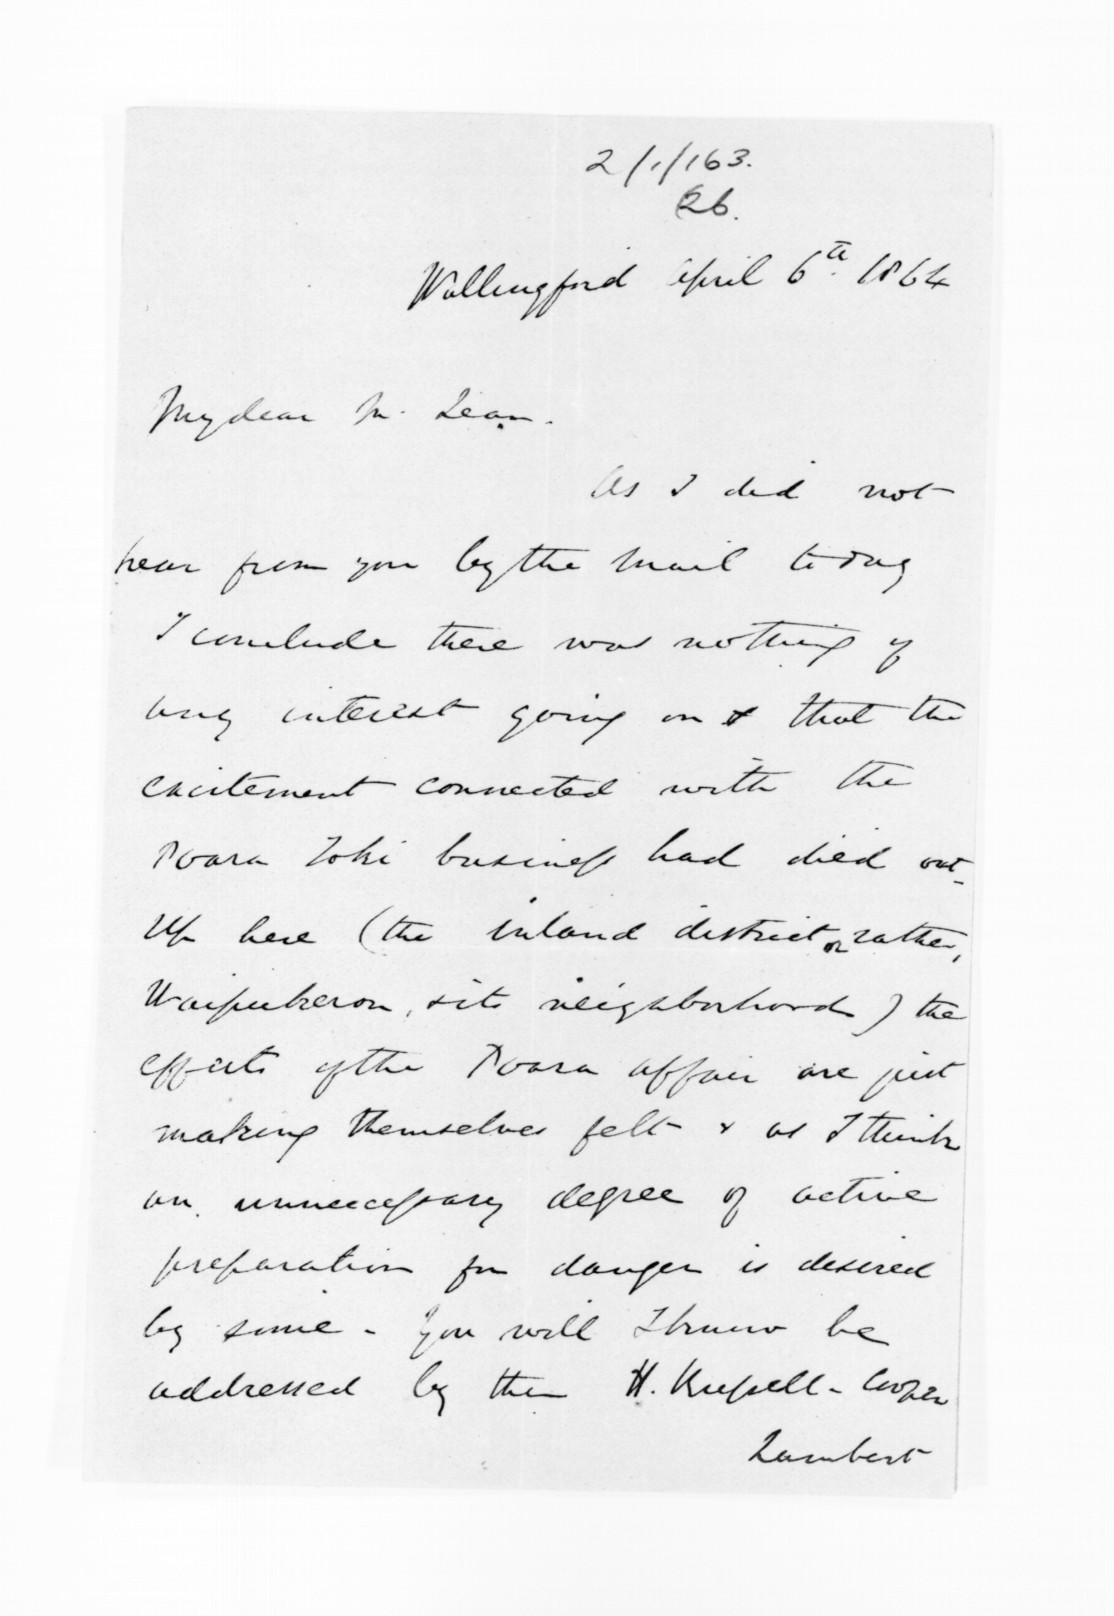 2/1/163.
26.
Wallingford April 6th 1864
My dear Mc Lean.
As I did not
hear from you by the Mail to day
I conclude there was nothing of
any interest going on & that the
excitement connected with the
Poara Toki business had died out
Up here (the inland district or rather,
Waipukerau, & its neighborhood) the
effects of the Poara affair are just
making themselves felt & as I think
an unnecessary degree of active
preparation for danger is desired
by some - You will I know be
addressed by the H. Russell - Cooper
Lambert